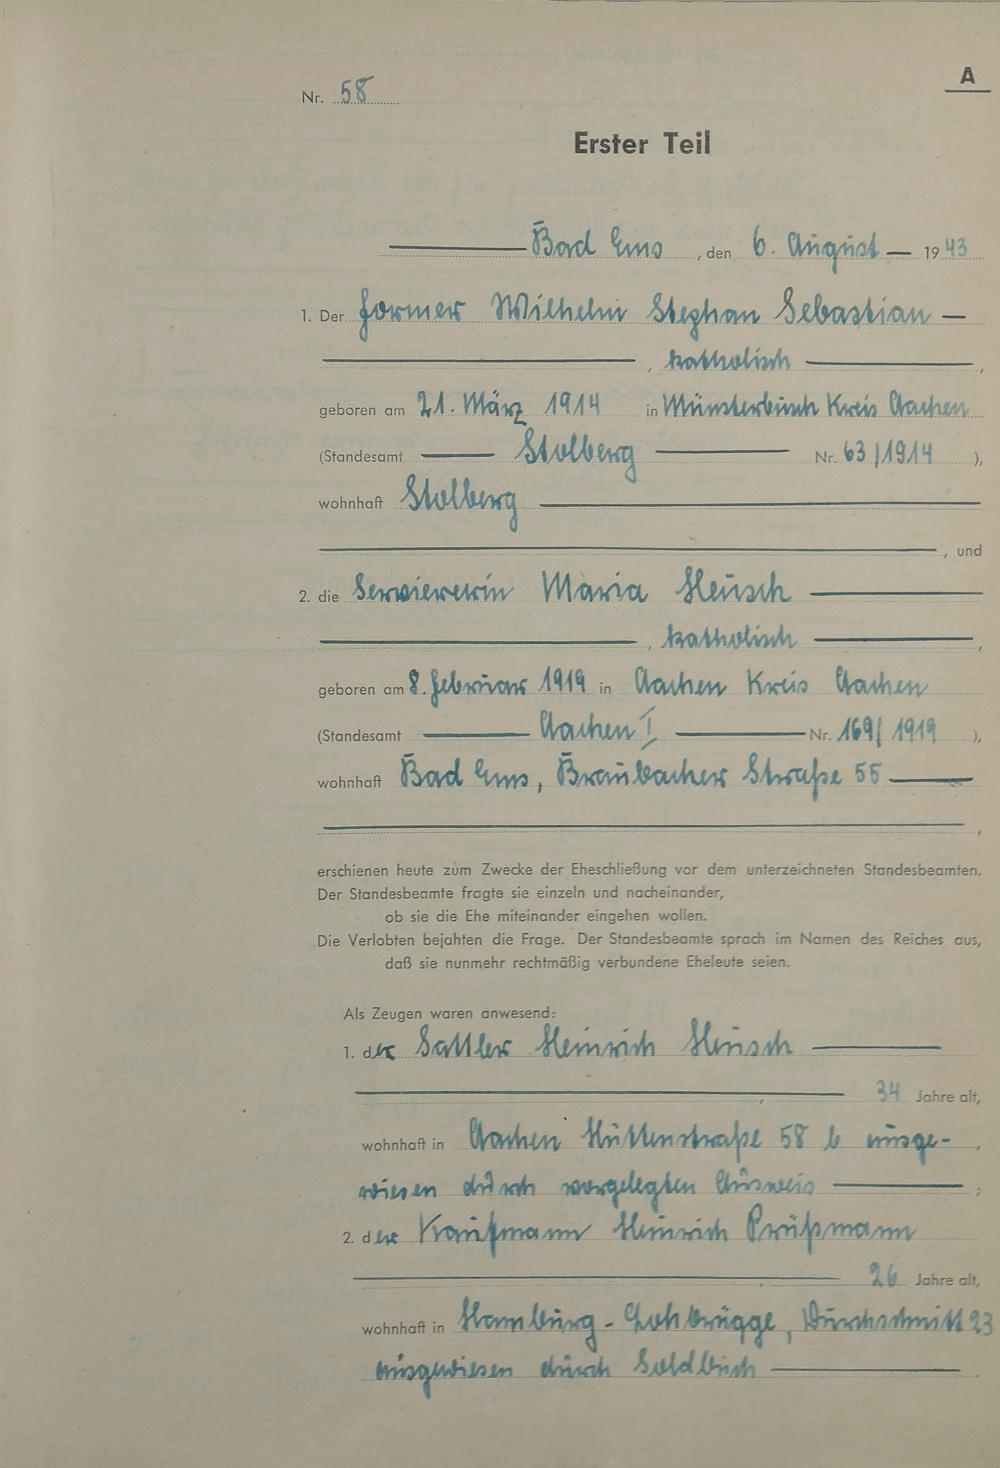 A
Nr. 58
Erster Teil
Bad Ems, den 6. August 1943
1. Der Former Wilhelm Stephan Sebastian
, katholisch,
geboren am 21. März 1914 in Münsterbusch Kreis Aachen
(Standesamt Stolberg Nr. 63/1914),
wohnhaft Stolberg
, und
2. die Serviererin Maria Heusch
, katholisch,
geboren am 8. Februar 1919 in Aachen Kreis Aachen
(Standesamt Aachen I Nr. 169/1919),
wohnhaft Bad Ems, Braubacher Straße 55
,
erschienen heute zum Zwecke der Eheschließung vor dem unterzeichneten Standesbeamten.
Der Standesbeamte fragte sie einzeln und nacheinander,
ob sie die Ehe miteinander eingehen wollen.
Die Verlobten bejahten die Frage. Der Standesbeamte sprach im Namen des Reiches aus,
daß sie nunmehr rechtmäßig verbundene Eheleute seien.
Als Zeugen waren anwesend:
1. der Sattler Heinrich Heusch
, 34 Jahre alt,
wohnhaft in Aachen Hüttenstraße 58 b ausge-,
wiesen durch vorgelegten Ausweis;
2. der Kaufmann Heinrich Prüßmann
, 26 Jahre alt,
wohnhaft in Hamburg-Lohbrügge, Durchschnitt 23
ausgewiesen durch Soldbuch